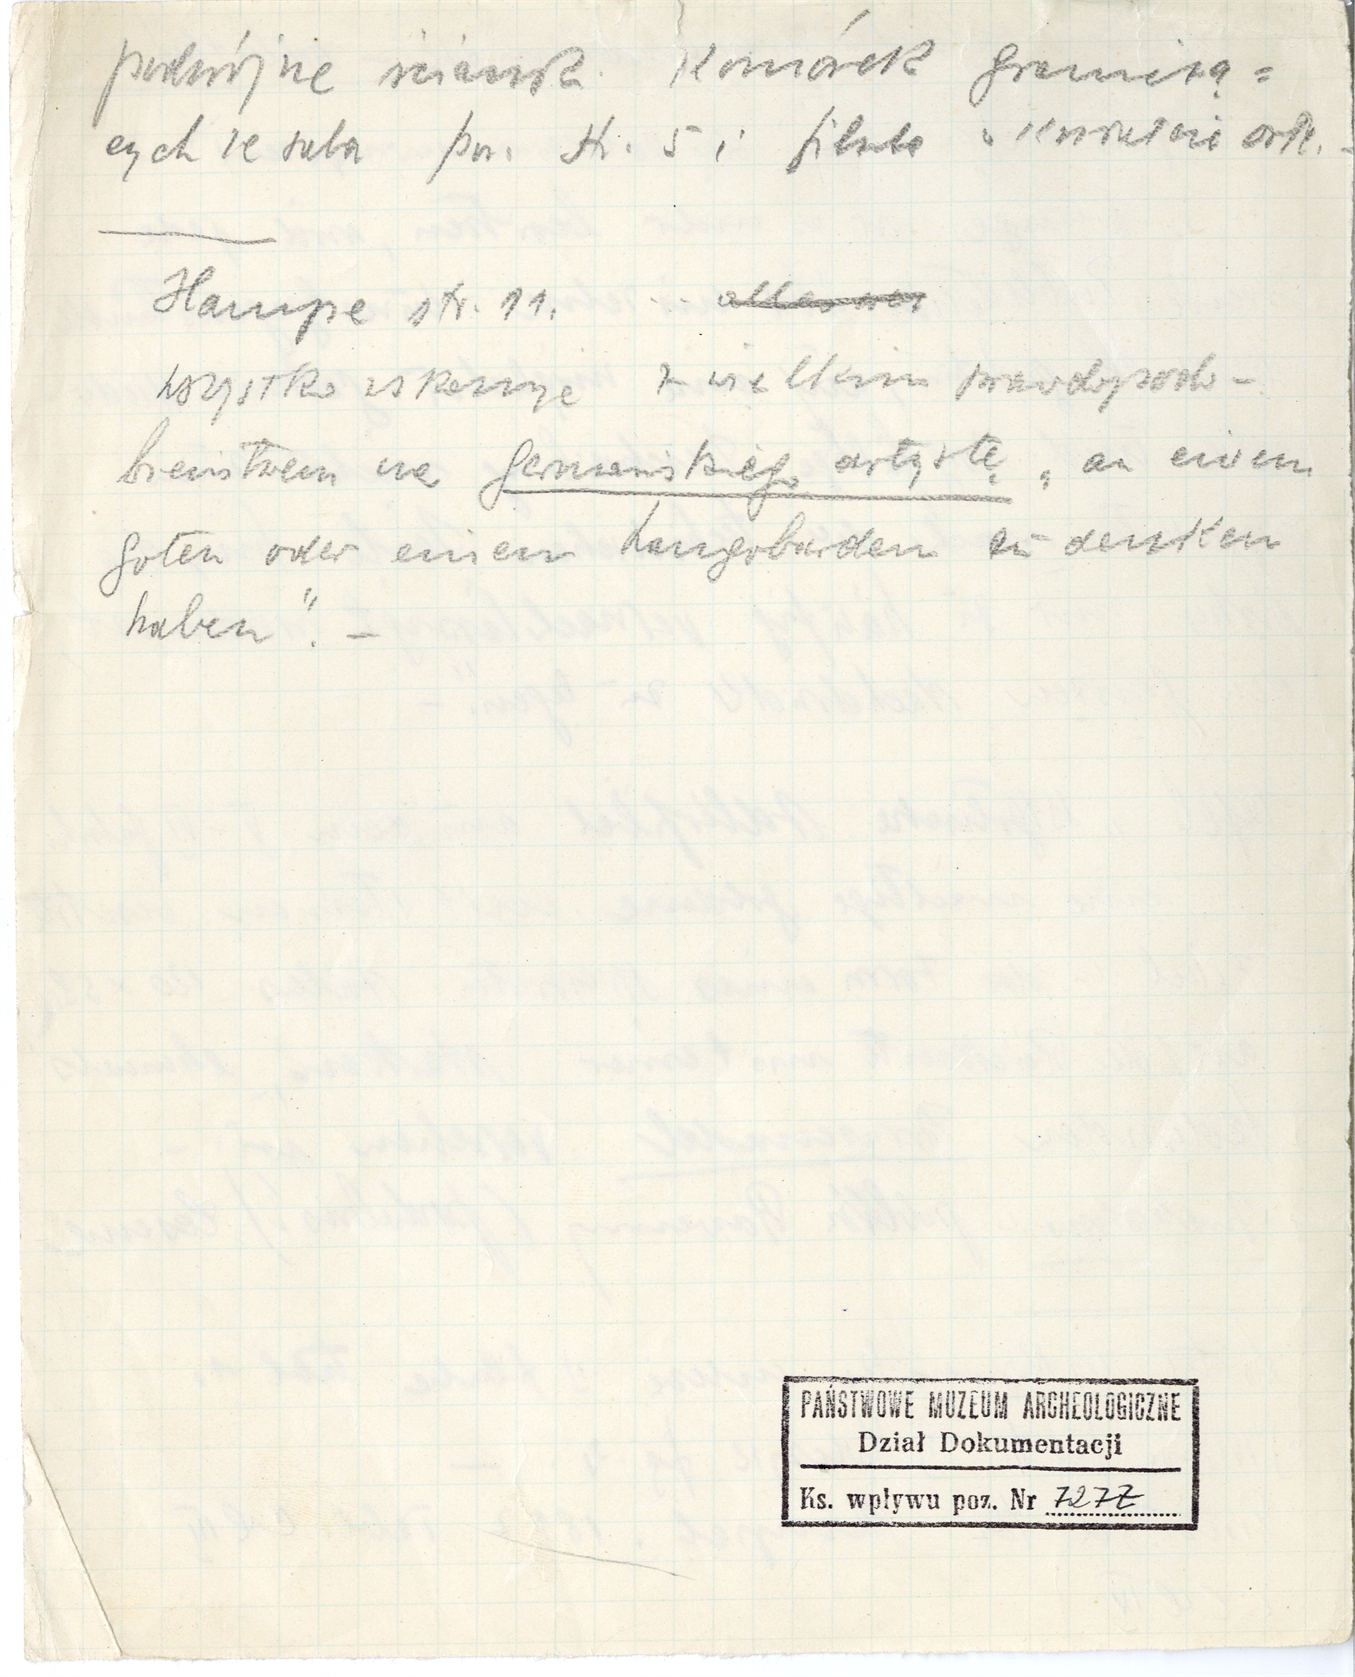 podwójne ścianki komórek graniczą=
cych ze sobą por. str. 5 i fibula w kształcie orła. -
Hampe str. 11.
wszystko wskazuje z wielkim prawdopodo-
bieństwem na germańskiego artystę „an einem
Goten oder einem Langobarden zu denken
haben". -
PAŃSTWOWE MUZEUM ARCHEOLOGICZNE
Dział Dokumentacji
Ks. wpływu poz. Nr 7277